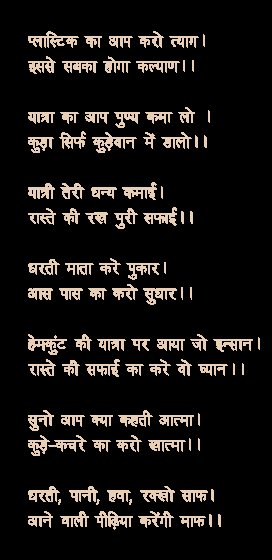 प्लास्टिक का आप करो त्याग।
इससे सबका होगा कल्याण।।
यात्रा का आप पुण्य कमा लो ।
कुड़ा सिर्फ कुड़ेदान में डालो।।
यात्री तेरी धन्य कमाई।
रास्ते की रख पुरी सफाई।।
धरती माता करे पुकार।
आस पास का करो सुधार।।
हेमकुंट की यात्रा पर आया जो इन्सान।
रास्ते की सफाई का करे वो ध्यान।।
सुनो आप क्या कहती आत्मा।
कुड़े-कचरे का करो खात्मा।।
धरती, पानी, हवा, रक्खो साफ।
आने वाली पीढ़िया करेंगी माफ।।